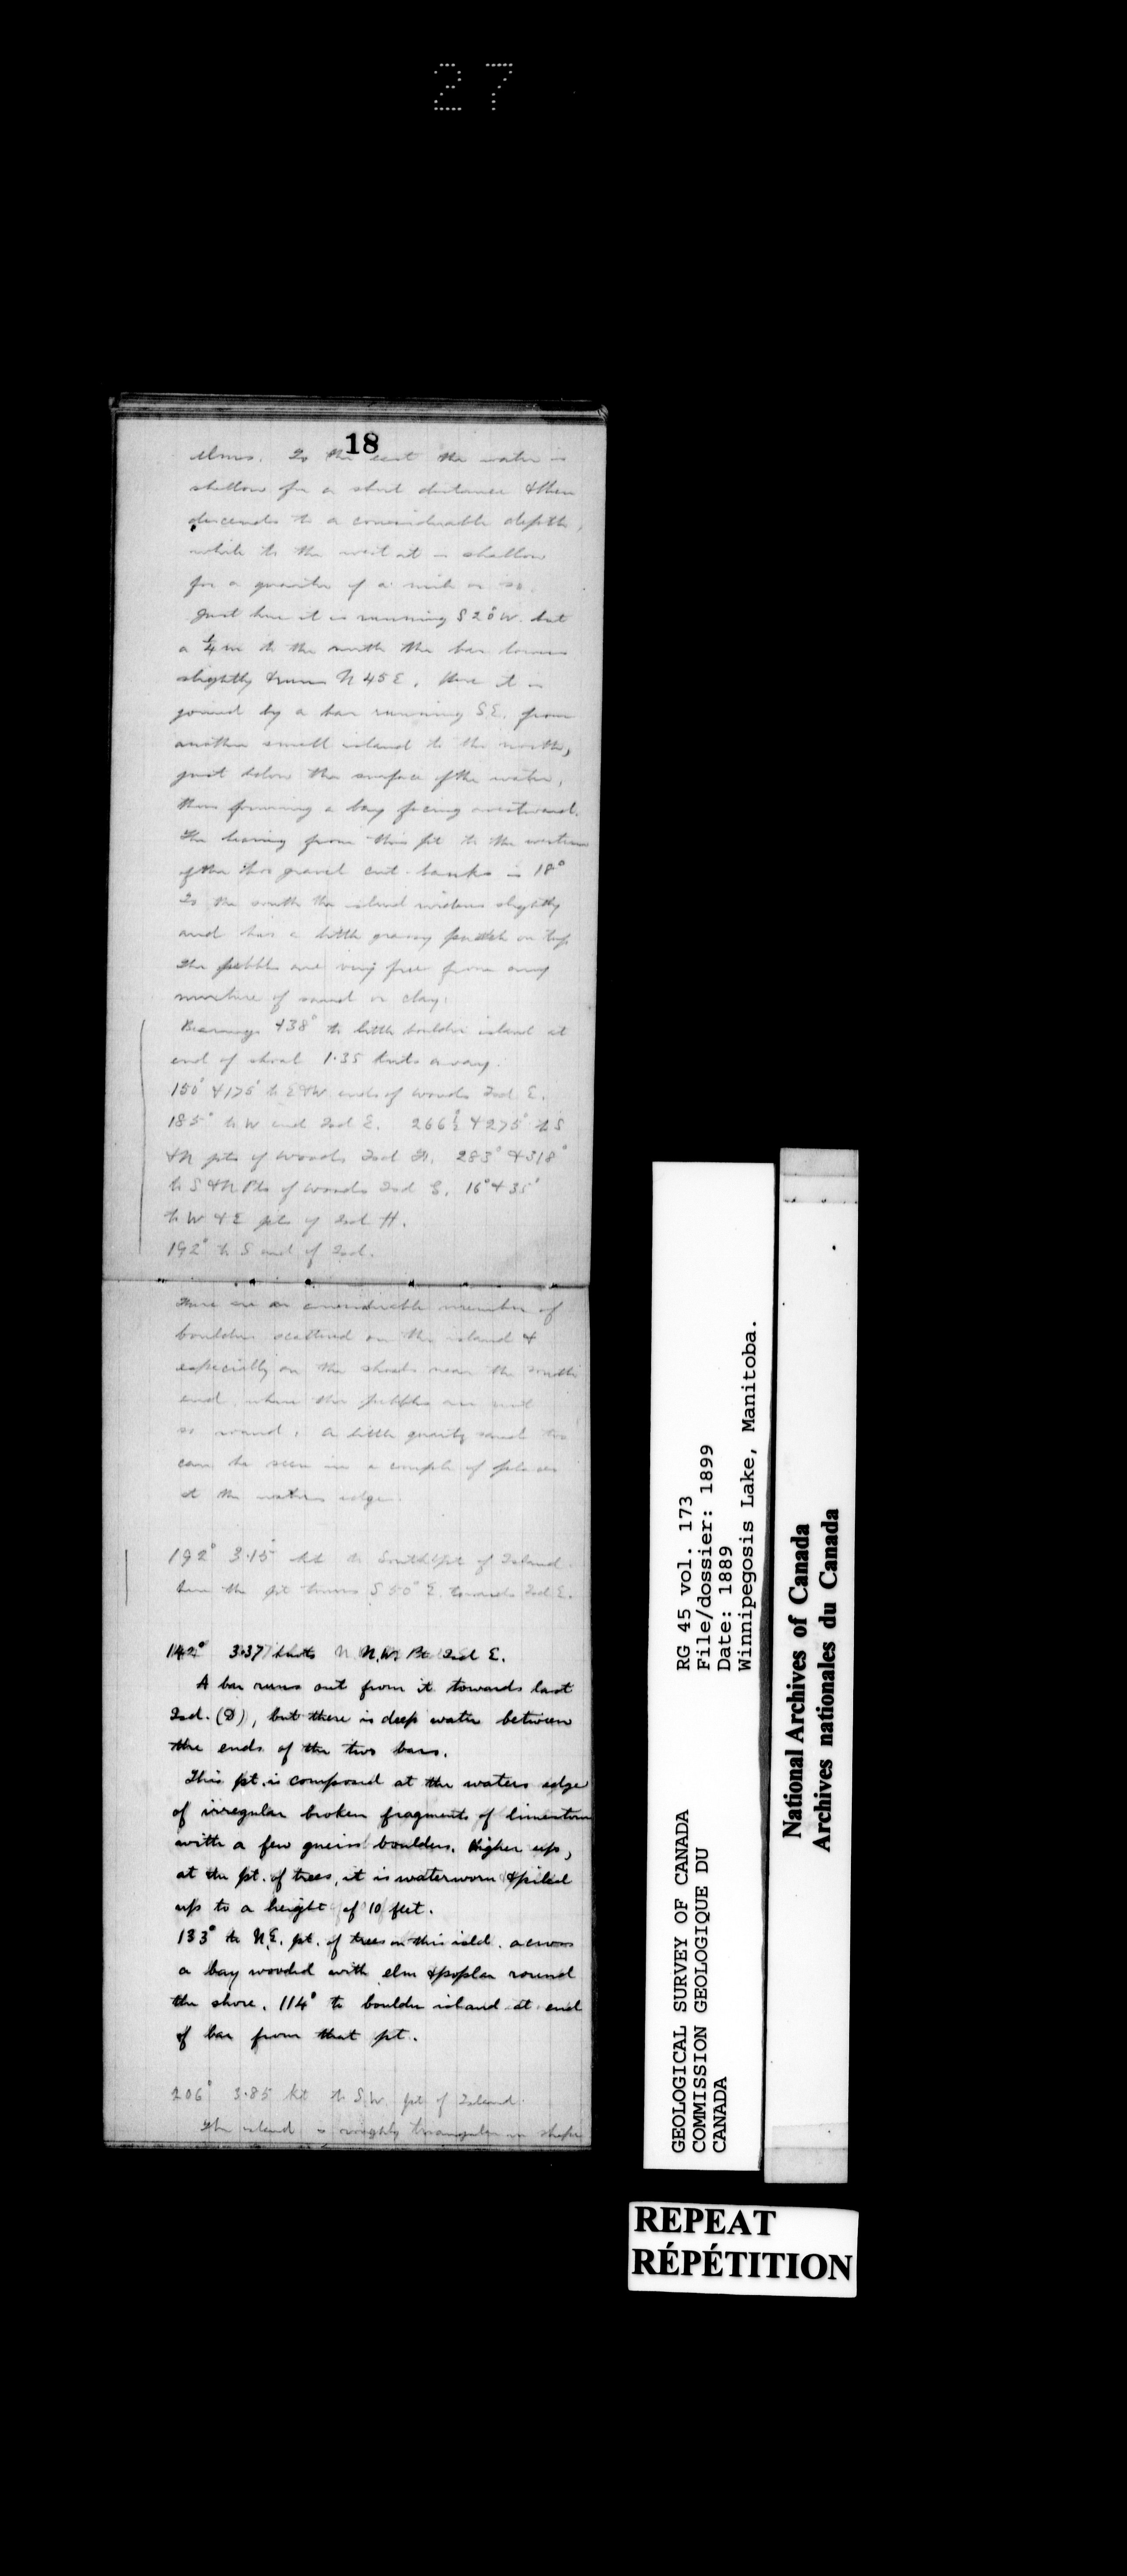 27
18
elms. To the east the water is
shallow for a short distance & then
descends to a considerable depth,
while to the west it is shallow
for a quarter of a mile or so.
Just here it is running S 20° W. but
a ¼ m to the north the bar lowers
slightly & runs N 45 E. Here it is
joined by a bar running S E. from
another small island to the north,
just below the surface of the water,
thus forming a bay facing westward.
The bearing from this pt to the western
of the two gravel cut-banks is 18°
To the south the island widens slightly
and has a little grassy patch on top
The pebbles are very free from any
mixture of sand or clay.
Bearings 438° to little boulder island at
end of shoal 1.35 knts away.
150° & 175° to E & W ends of woods Isd E.
185° to W end Isd E. 266½ & 275° to S
& N pts of woods Isd 283° & 318°
to S & N Pts of woods Isd G. 16° & 35°
to W & E pts of Isd H.
192° to S end of Isd.
There are a considerable number of
boulders scattered on the island &
especially on the shoals near the south
end, where the pebbles are not
so round. A little sand too
can be seen in a couple of places
at the waters edge.
192° 3.15 kts to South pt of Island
here the pt turns S 50° E. towards Isd E.
142° 3.37 knots N.W. Pt Isd E.
A bar runs out from it towards last
Isd. (D), but there is deep water between
the ends of the two bars.
This pt. is composed at the waters edge
of irregular broken fragments of limestone
with a few gneiss boulders. Higher up,
at the pt. of trees, it is waterworn & piled
up to a height of 10 feet.
133° to N.E. pt. of trees on this isld. across
a bay wooded with elm & poplar round
the shore. 114° to boulder island at end
of bar from that pt.
206° 3.85 kts to S.W. pt of Island.
The island is roughly triangular in shape
GEOLOGICAL SURVEY OF CANADA
COMMISSION GEOLOGIQUE DU
CANADA
RG 45 vol. 173
File/dossier: 1899
Date: 1889
Winnipegosis Lake, Manitoba.
National Archives of Canada
Archives nationales du Canada
REPEAT
RÉPÉTITION